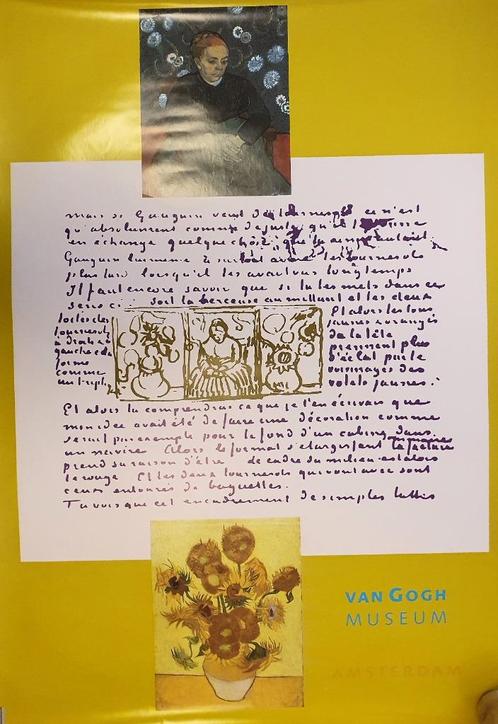 mais si Gauguin veut des tournesols ce n'est
qu'absolument comme de juste qu'il te donne
en échange quelque chose que tu
Gauguin lui même a surtout aimé les tournesols
plus tard lorsqu'il les avait vus longtemps
Il faut encore savoir que si tu les mets dans ce
sens ci: soit la berceuse au milieu et les deux
toiles des
tournesols
à droite et à
gauche cela
forme
comme
un triptyque
Et alors les tons
jaunes & orangés
de la tête
prennent plus
d'éclat par le
voisinage des
volets jaunes.
Et alors tu comprendras ce que je t'en écrivais que
mon idée avait été de faire une décoration comme
serait par exemple pour le fond d'un cabine dans
un navire Alors le format s'élargissant la facture
prend sa raison d'être de cadre du milieu est alors
le rouge Et les deux tournesols qui vont avec sont
ceux entourés de baguettes.
Tu vois que cet encadrement de simples lattes
VAN GOGH
MUSEUM
AMSTERDAM